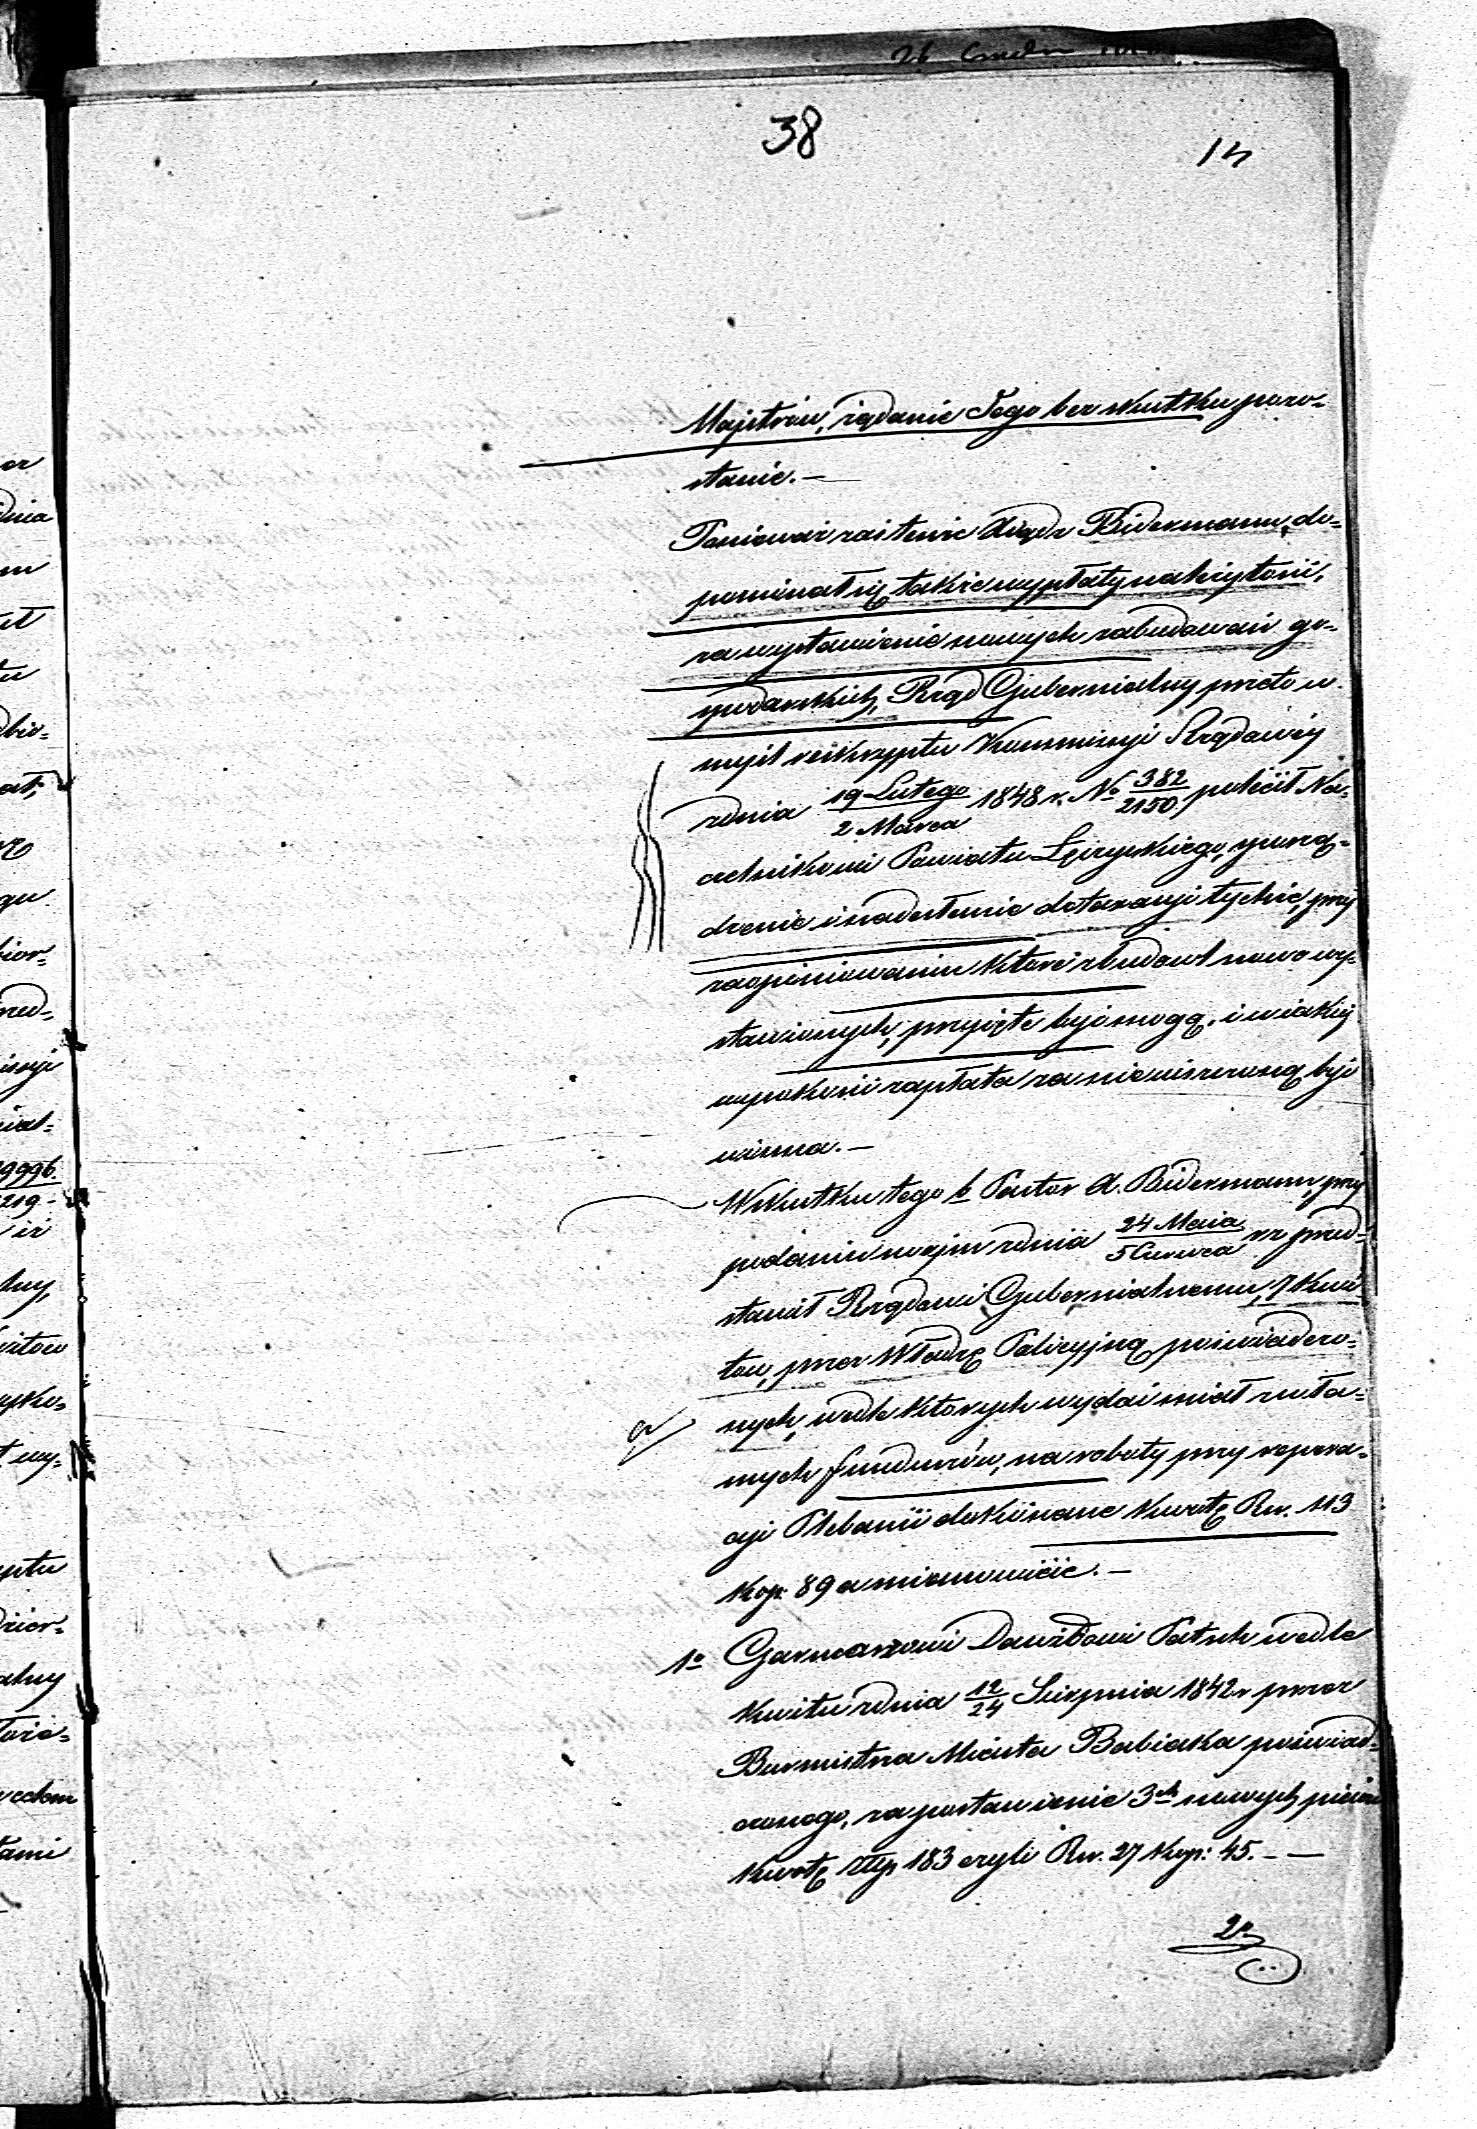 38
14
Majstrów, żądanie Jego bez skutku pozo-
stanie. —
Ponieważ zaś tenże Xiądz Bidermann, do-
pominał się także wypłaty należytości,
za wystawienie nowych zabudowań go-
spodarskich, Rząd Gubernialny przeto w
myśl reskryptu Kommissyi Rządowéy
z dnia 19 Lutego / 2 Marca 1848 r. No 382/2150 polécił Na-
czelnikowi Powiatu Łęczyckiego, sporzą-
dzenie i nadesłanie detaxacyi tychże, przy
zaopiniowaniu które z budowl nowo wy-
stawionych, przyjęte byź mogą, i w jakiéj
wysokości zapłata za nie uiszczoną byź
winna. —
W skutku tego b. Pastor X. Bidermann, przy
podaniu swojem z dnia 24 Maia / 5 Czerwca r. z. przed-
stawił Rządowi Gubernialnemu, 7 Kwi-
tów, przez Władzę Policyjną poświadczo-
nych, wedle których wydać miał z wła-
snych funduszów, na roboty przy repera-
cyi Plebanii dokonane kwotę Rs. 113
Kop. 89 a mianowicie. —
1o Garncarzowi Dawidowi Patsch wedle
Kwitu z dnia 12/24 Sierpnia 1842 r przez
Burmistrza Miasta Babiaka poświad-
czonego, za postawienie 3ch nowych pieców
kwotę Złp 183 czyli Rs. 27 Kop: 45. — —
2o
er
dnia
m
ał
tu
gu
9996.
219
ir
łny,
witów
wy-
ptu
alny
eckem
ami